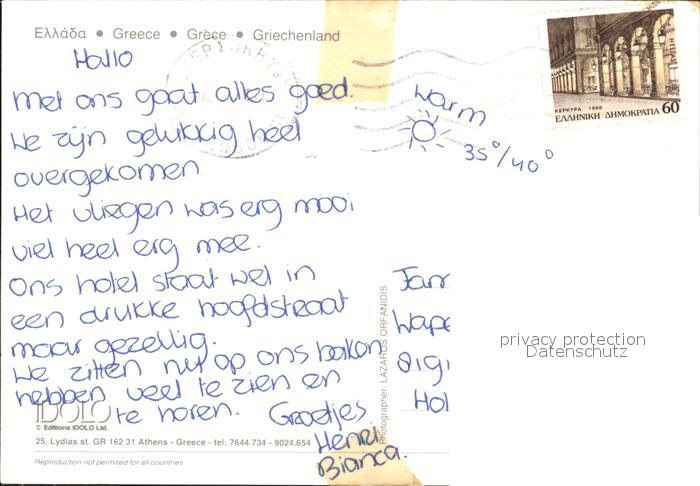 Ελλάδα • Greece • Grèce • Griechenland
Hallo
Met ons gaat alles goed.
We zijn gelukkig heel
overgekomen
Het vliegen was erg mooi
viel heel erg mee.
Ons hotel staat wel in
een drukke hoofdstraat
maar gezellig.
We zitten nu op ons balkon
hebben veel te zien en
te horen. Groetjes
Henri
Bianca.
warm
35°/40°
ΚΕΡΚΥΡΑ 1988
ΕΛΛΗΝΙΚΗ ΔΗΜΟΚΡΑΤΙΑ 60
Photographer: LAZAROS ORFANIDIS
Wape
Hol
privacy protection
Datenschutz
IDOLO
© Editions IDOLO Ltd.
25, Lydias st. GR 162 31 Athens - Greece - tel: 7644.734 - 9024.654
Reproduction not permited for all countries